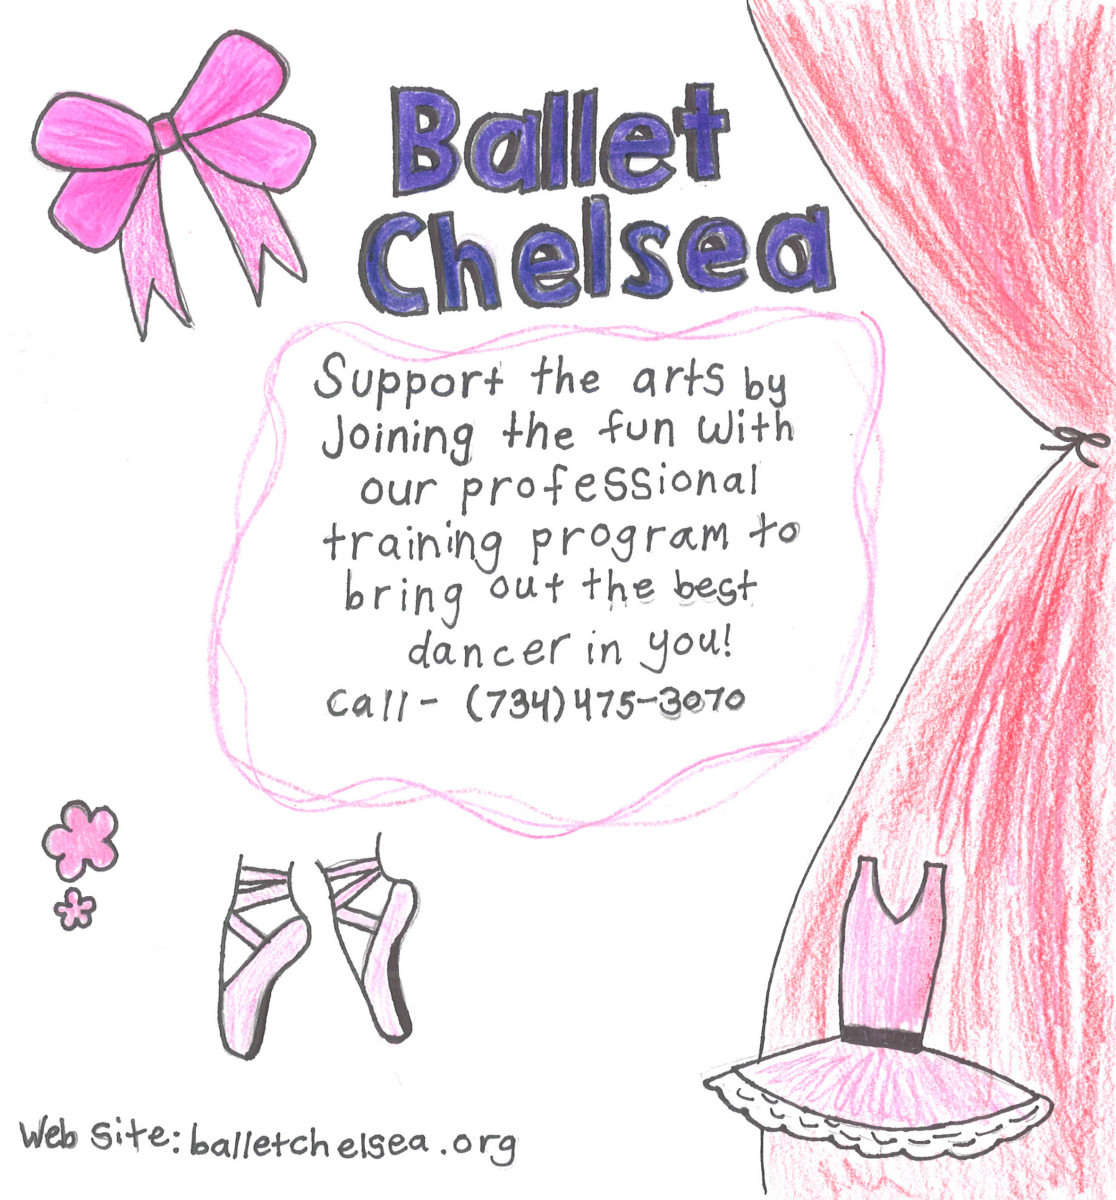 Ballet
Chelsea
Support the arts by
Joining the fun with
our professional
training program to
bring out the best
dancer in you!
Call - (734)475-3070
Web Site: balletchelsea.org